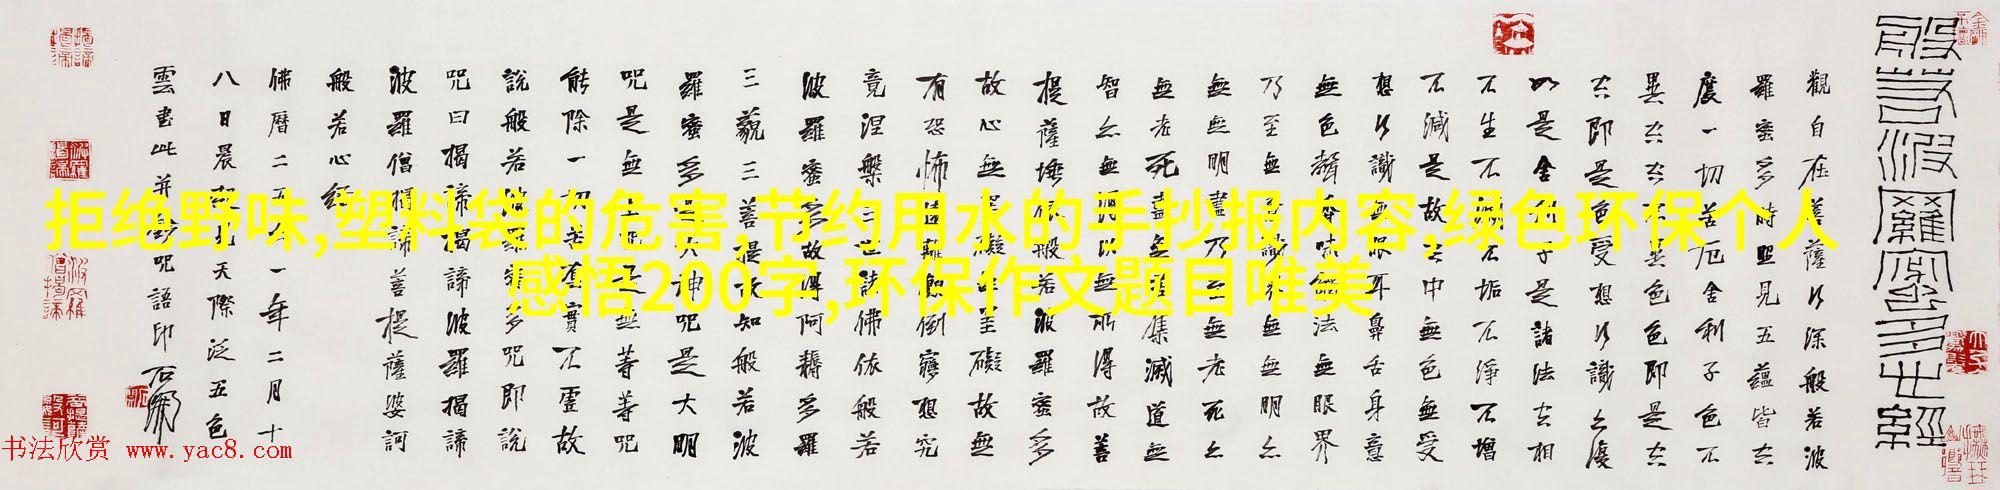 般若波羅蜜多心經
觀自在菩薩行深般若波
羅蜜多時照見五蘊皆空
度一切苦厄舍利子色不
異空空不異色色即是空
空即是色受想行識亦復
如是舍利子是諸法空相
不生不滅不垢不淨不增
不減是故空中無色無受
想行識無眼耳鼻舌身意
無色聲香味觸法無眼界
乃至無意識界無無明亦
無無明盡乃至無老死亦
無老死盡無苦集滅道無
智亦無得以無所得故菩
提薩埵依般若波羅蜜多
故心無罣礙無罣礙故無
有恐怖遠離顛倒夢想究
竟涅槃三世諸佛依般若
波羅蜜多故得阿耨多羅
三藐三菩提故知般若波
羅蜜多是大神咒是大明
咒是無上咒是無等等咒
能除一切苦真實不虛故
說般若波羅蜜多咒即說
咒曰揭諦揭諦波羅揭諦
波羅僧揭諦菩提薩婆訶
般若心經
佛曆二五一年二月十
八日晨起北天際泛五色
雲書此并咒語印
拒绝野味,塑料袋的危害,节约用水的手抄报内容,绿色环保个人
感悟200字,环保作文题目唯美
书法欣赏 www.yac8.com